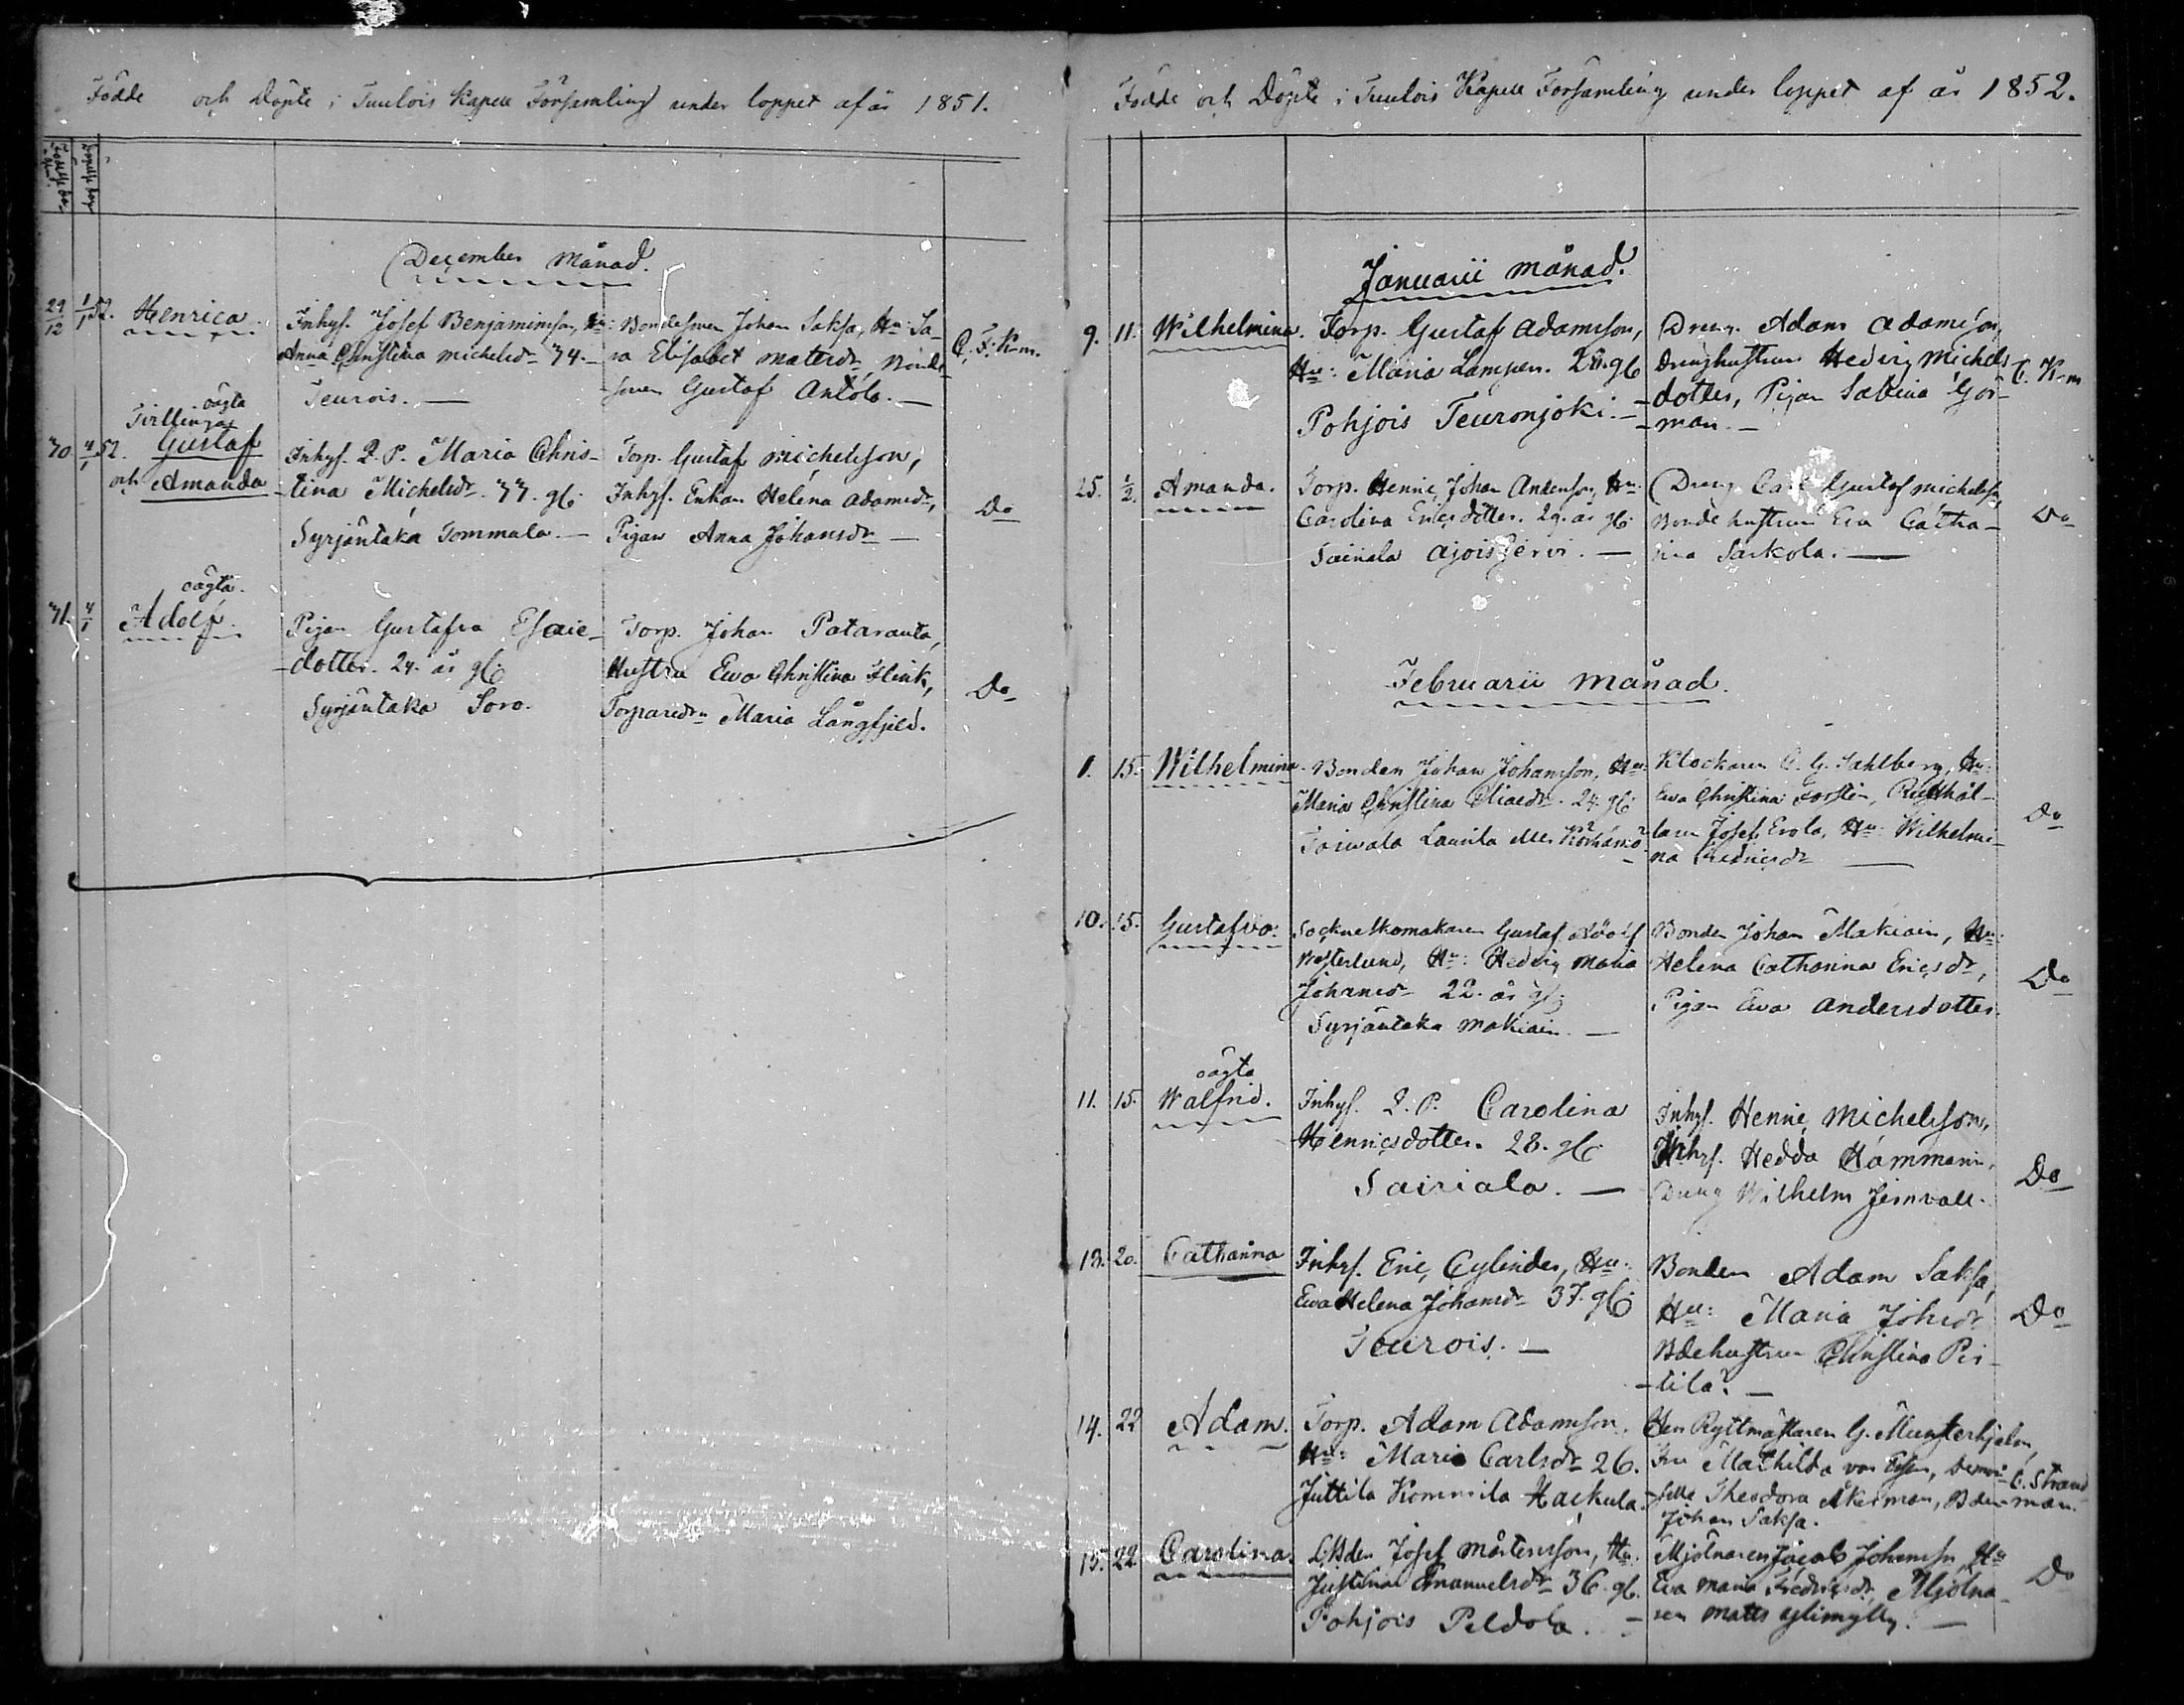 Födde och Döpte i Tuulois Kapell Församling under loppet af år 1851.
December månad.
29/12 1/1 52. Henrica
Inhys. Josef Benjaminsson, Hu:
Anna Christina Michelsdr 34.
Teurois.
Bondesonen Johan Saksa, Hu: Sa-
ra Elisabet Matsdr, Bonde-
sonen Gustaf Anttola.
C. F. K-m.
oägta
Tvillingar
30 4/1 52. Gustaf
och Amanda
Inhys. Q. P. Maria Chris-
tina Michelsdr. 33. gl.
Syrjäntaka Tommala.
Torp. Gustaf Michelsson,
Inhys. Enkan Helena Adamsdr,
Pigan Anna Johansdr
Do
oägta.
31. 4/1 Adolf.
Pigan Gustafva Esaie-
dotter. 24. år gl.
Syrjäntaka Soro.
Torp. Johan Pataranta,
Hustru Ewa Christina Flink,
Torparedr Maria Långfjeld.
Do
Födde och Döpte i Tuulois Kapell Församling under loppet af år 1852.
Januarii månad.
9. 11. Wilhelmina.
Torp. Gustaf Adamsson,
Hu: Maria Lampen. 28. gl
Pohjois Teuronjoki.
Dreng. Adam Adamsson,
Drenghustrun Hedvig Michels-
dotter, Pigan Sabina Gör-
man.
C. K-m
25. 1/2. Amanda.
Torp. Henric Johan Andersson, Hu:
Carolina Ericsdotter. 29. år gl.
Sairiala Ajoisjervi.
Dreng Carl Gustaf Michelsson,
Bondehustrun Eva Catha-
rina Sarkola.
Do
Februarii månad.
1. 15. Wilhelmina.
Bonden Johan Johansson, Hu:
Maria Christina Eliaedr. 24. gl.
Toivala Laurila
Klockaren C. G. Sahlberg, Hu:
Ewa Christina Forstén, Rusthål-
laren Josef Erola, Hu: Wilhelmi-
na Fredricsdr
Do
10. 15. Gustafva.
Sockneskomakaren Gustaf Adolf
Westerlund, Hu: Hedvig Maria
Johansdr 22. år gl.
Syrjäntaka Makiain.
Bonden Johan Makiain, Hu:
Helena Catharina Ericsdr,
Pigan Ewa Andersdotter.
Do
oägta
11. 15. Walfrid.
Inhys. Q. P. Carolina
Henricsdotter. 28. gl.
Sairiala.
Inhys. Henric Michelsson,
Inhys. Hedda Hammarin,
Dreng Wilhelm Jernvall.
Do
13. 20. Catharina
Inhys. Eric Cylinder, Hu:
Ewa Helena Johansdr 37. gl.
Teurois.
Bonden Adam Saksa,
Hu: Maria Johsdr
Bdehustrun Christina Per-
tila.
Do
14. 22 Adam.
Torp. Adam Adamsson.
Hu: Maria Carlsdr 26.
Juttila Kommila Hackula.
Herr Ryttmästaren G. Munsterhjelm,
Fru Mathilda von Essen, Demoi-
selle Theodora Åkerman, Bden
Johan Saksa.
C. Strand-
man.
15. 22 Carolina.
Josef Mårtensson, Hu:
Justina Emanuelsdr 36. gl.
Pohjois Peldola.
Mjölnaren Jacob Johansson, Hu
Eva Maria Fredricsdr, Mjölna-
ren Matts Ylimylly.
Do